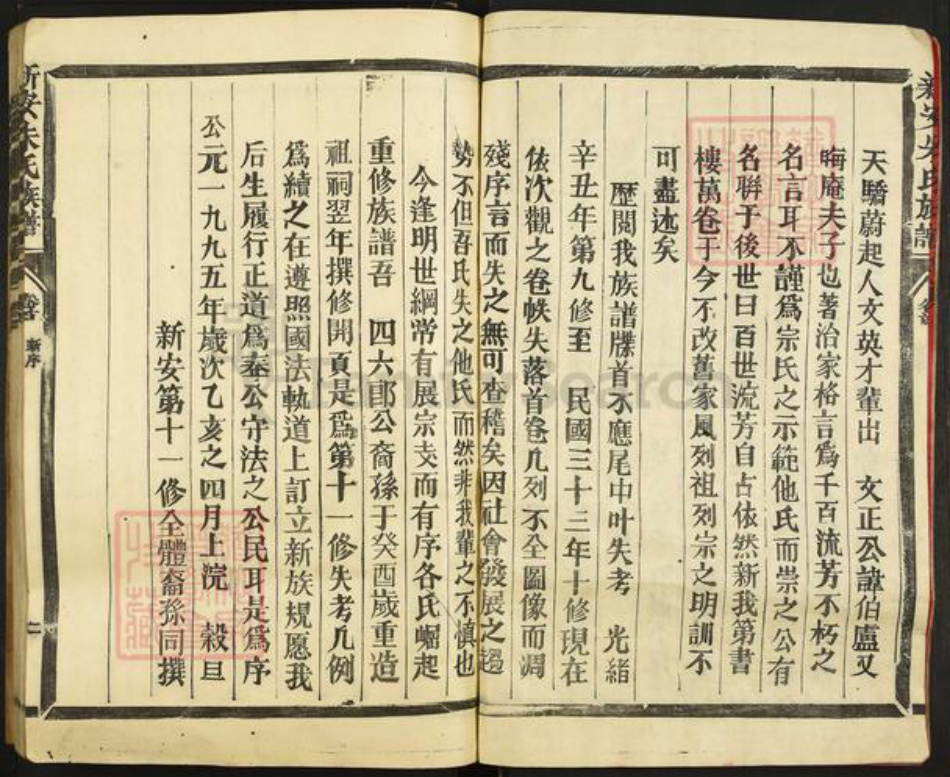 天驕蔚起人文英才輩出　文正公諱伯盧又
晦庵夫子也著治家格言爲千百流芳不朽之
名言耳不謹爲宗氏之示範他氏而崇之公有
名聨于後世曰百世流芳自占依然新我第書
樓萬卷于今不改舊家風列祖列宗之明訓不
可盡述矣
歷閱我族譜牒首不應尾中叶失考　光緒
辛丑年第九修至　民國三十三年十修現在
依次觀之卷帙失落首卷凡列不全圖像而凋
殘序言而失之無可查稽矣因社會發展之趨
勢不但吾氏失之他氏而然非我輩之不慎也
今逢明世綱常有展宗支而有序各氏崛起
重修族譜吾　四六郎公裔孫于癸酉歲重造
祖祠翌年撰修開頁是爲第十一修失考凡例
爲續之在遵照國法軌道上訂立新族規愿我
后生履行正道爲奉公守法之公民耳是爲序
公元一九九五年歲次乙亥之四月上浣　穀旦
新安第十一修全體裔孫同撰
新安朱氏族譜
新序
二
新安朱氏族譜